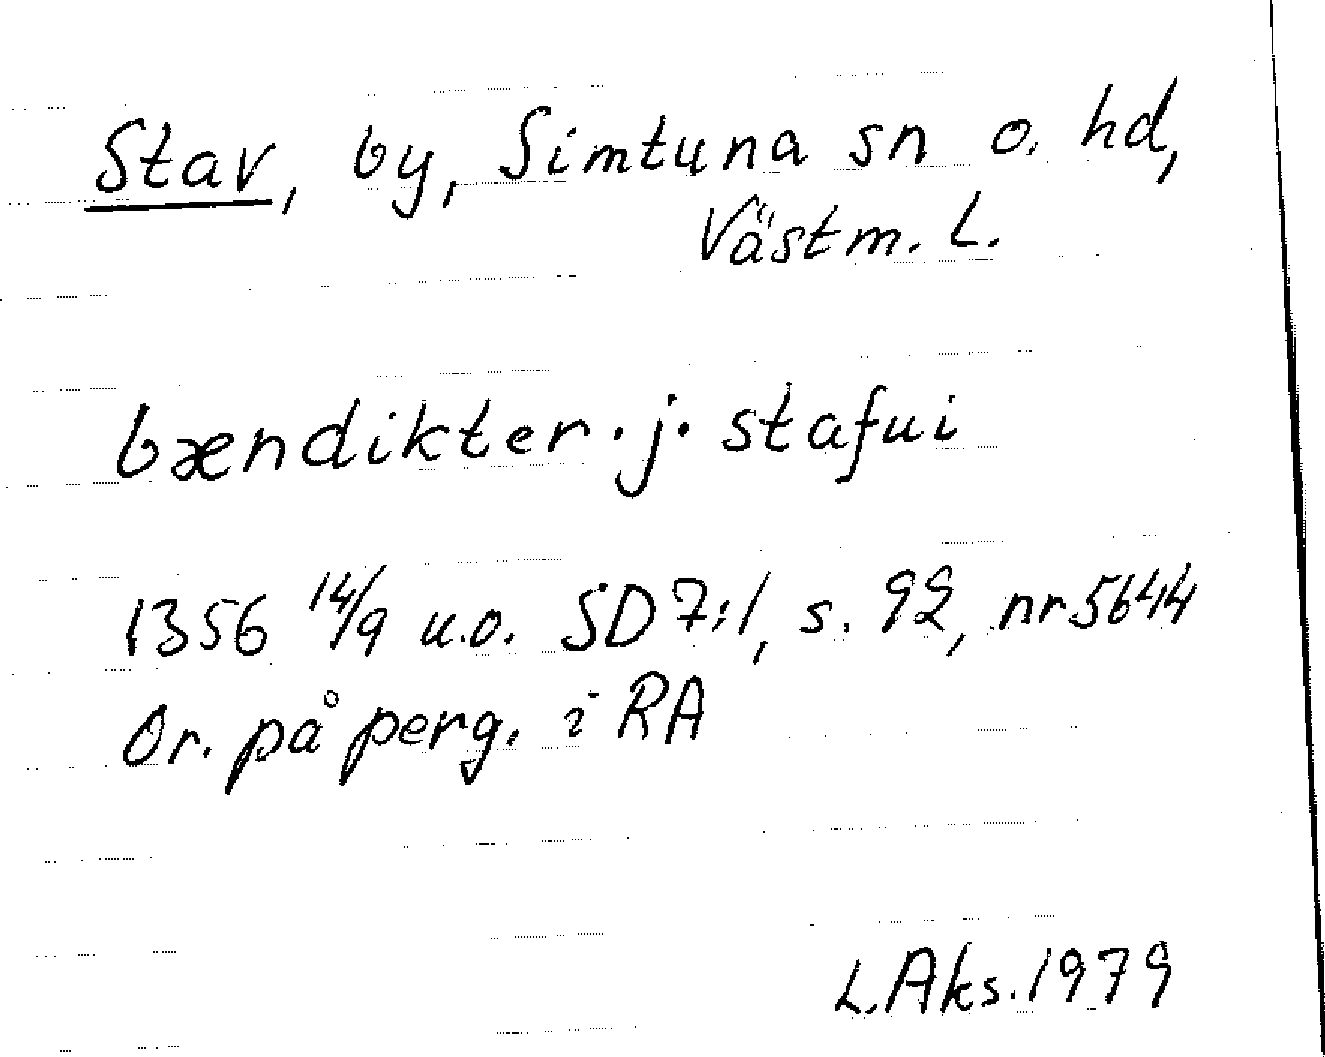 Stav, by, Simtuna sn o. hd,
Västm. L.
bændikter · j · stafui
1356 14/9 u.o. SD 7:1, s. 92, nr 5644
Or. på perg. i RA
L. Aks. 1979